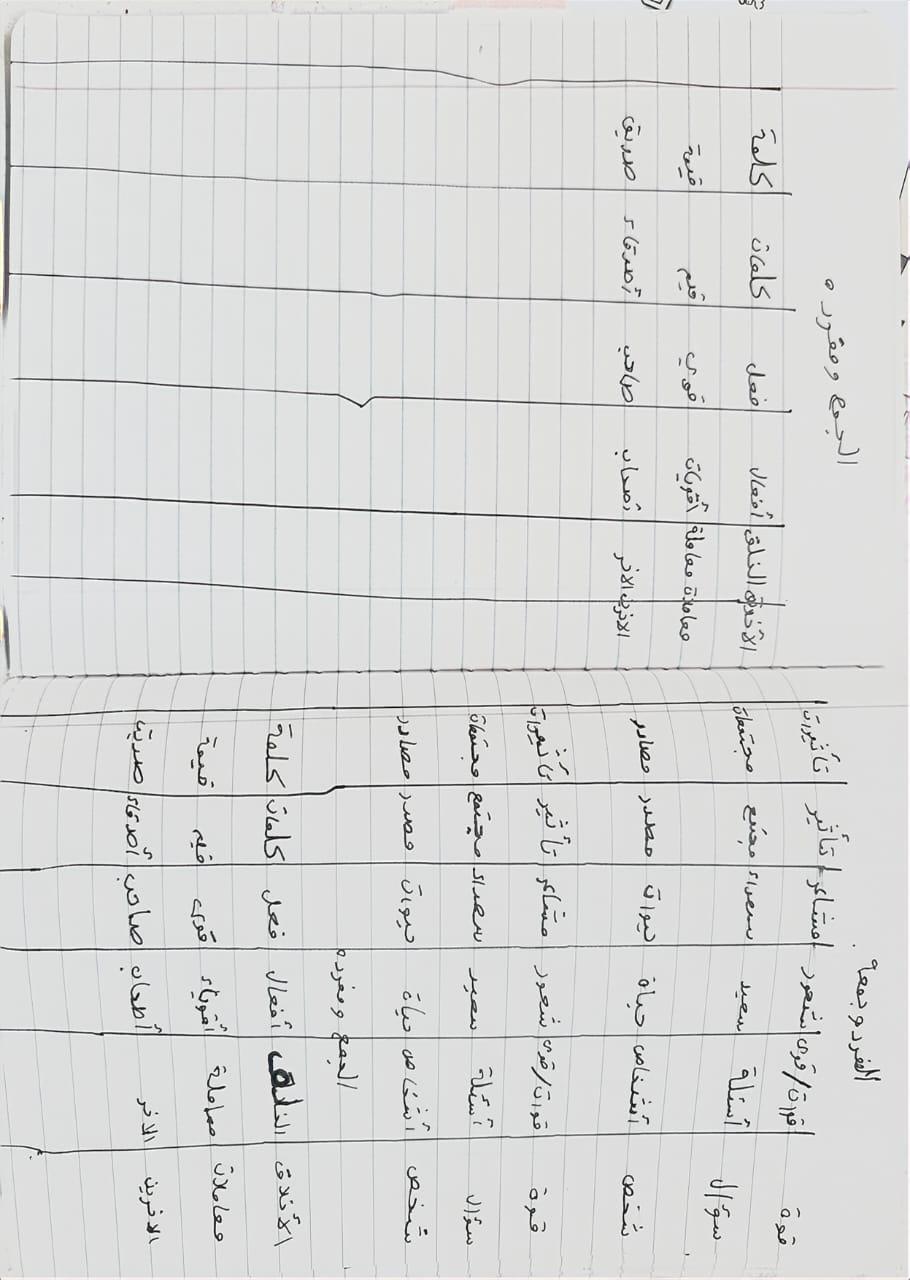 المفرد وجمعه
قوة قوات/قوى شعور مشاعر تأثير تأثيرات
سؤال أسئلة سعيد سعداء مجتمع مجتمعات
شخص أشخاص حياة حيوات مصدر مصادر
قوة قوات/قوى شعور مشاعر تأثير تأثيرات
سؤال أسئلة سعيد سعداء مجتمع مجتمعات
شخص أشخاص حياة حيوات مصدر مصادر
الجمع ومفرده
الأخلاق الخلق أفعال فعل كلمات كلمة
معاملات معاملة أقوياء قوى قيم قيمة
الاخرين الاخر أصحاب صاحب أصدقاء صديق
الجمع ومفرده
الأخلاق الخلق أفعال فعل كلمات كلمة
معاملة معاملة أقويات قوي قيم قيمة
الاخرين الاخر أصحاب صاحب أصدقاء صديق